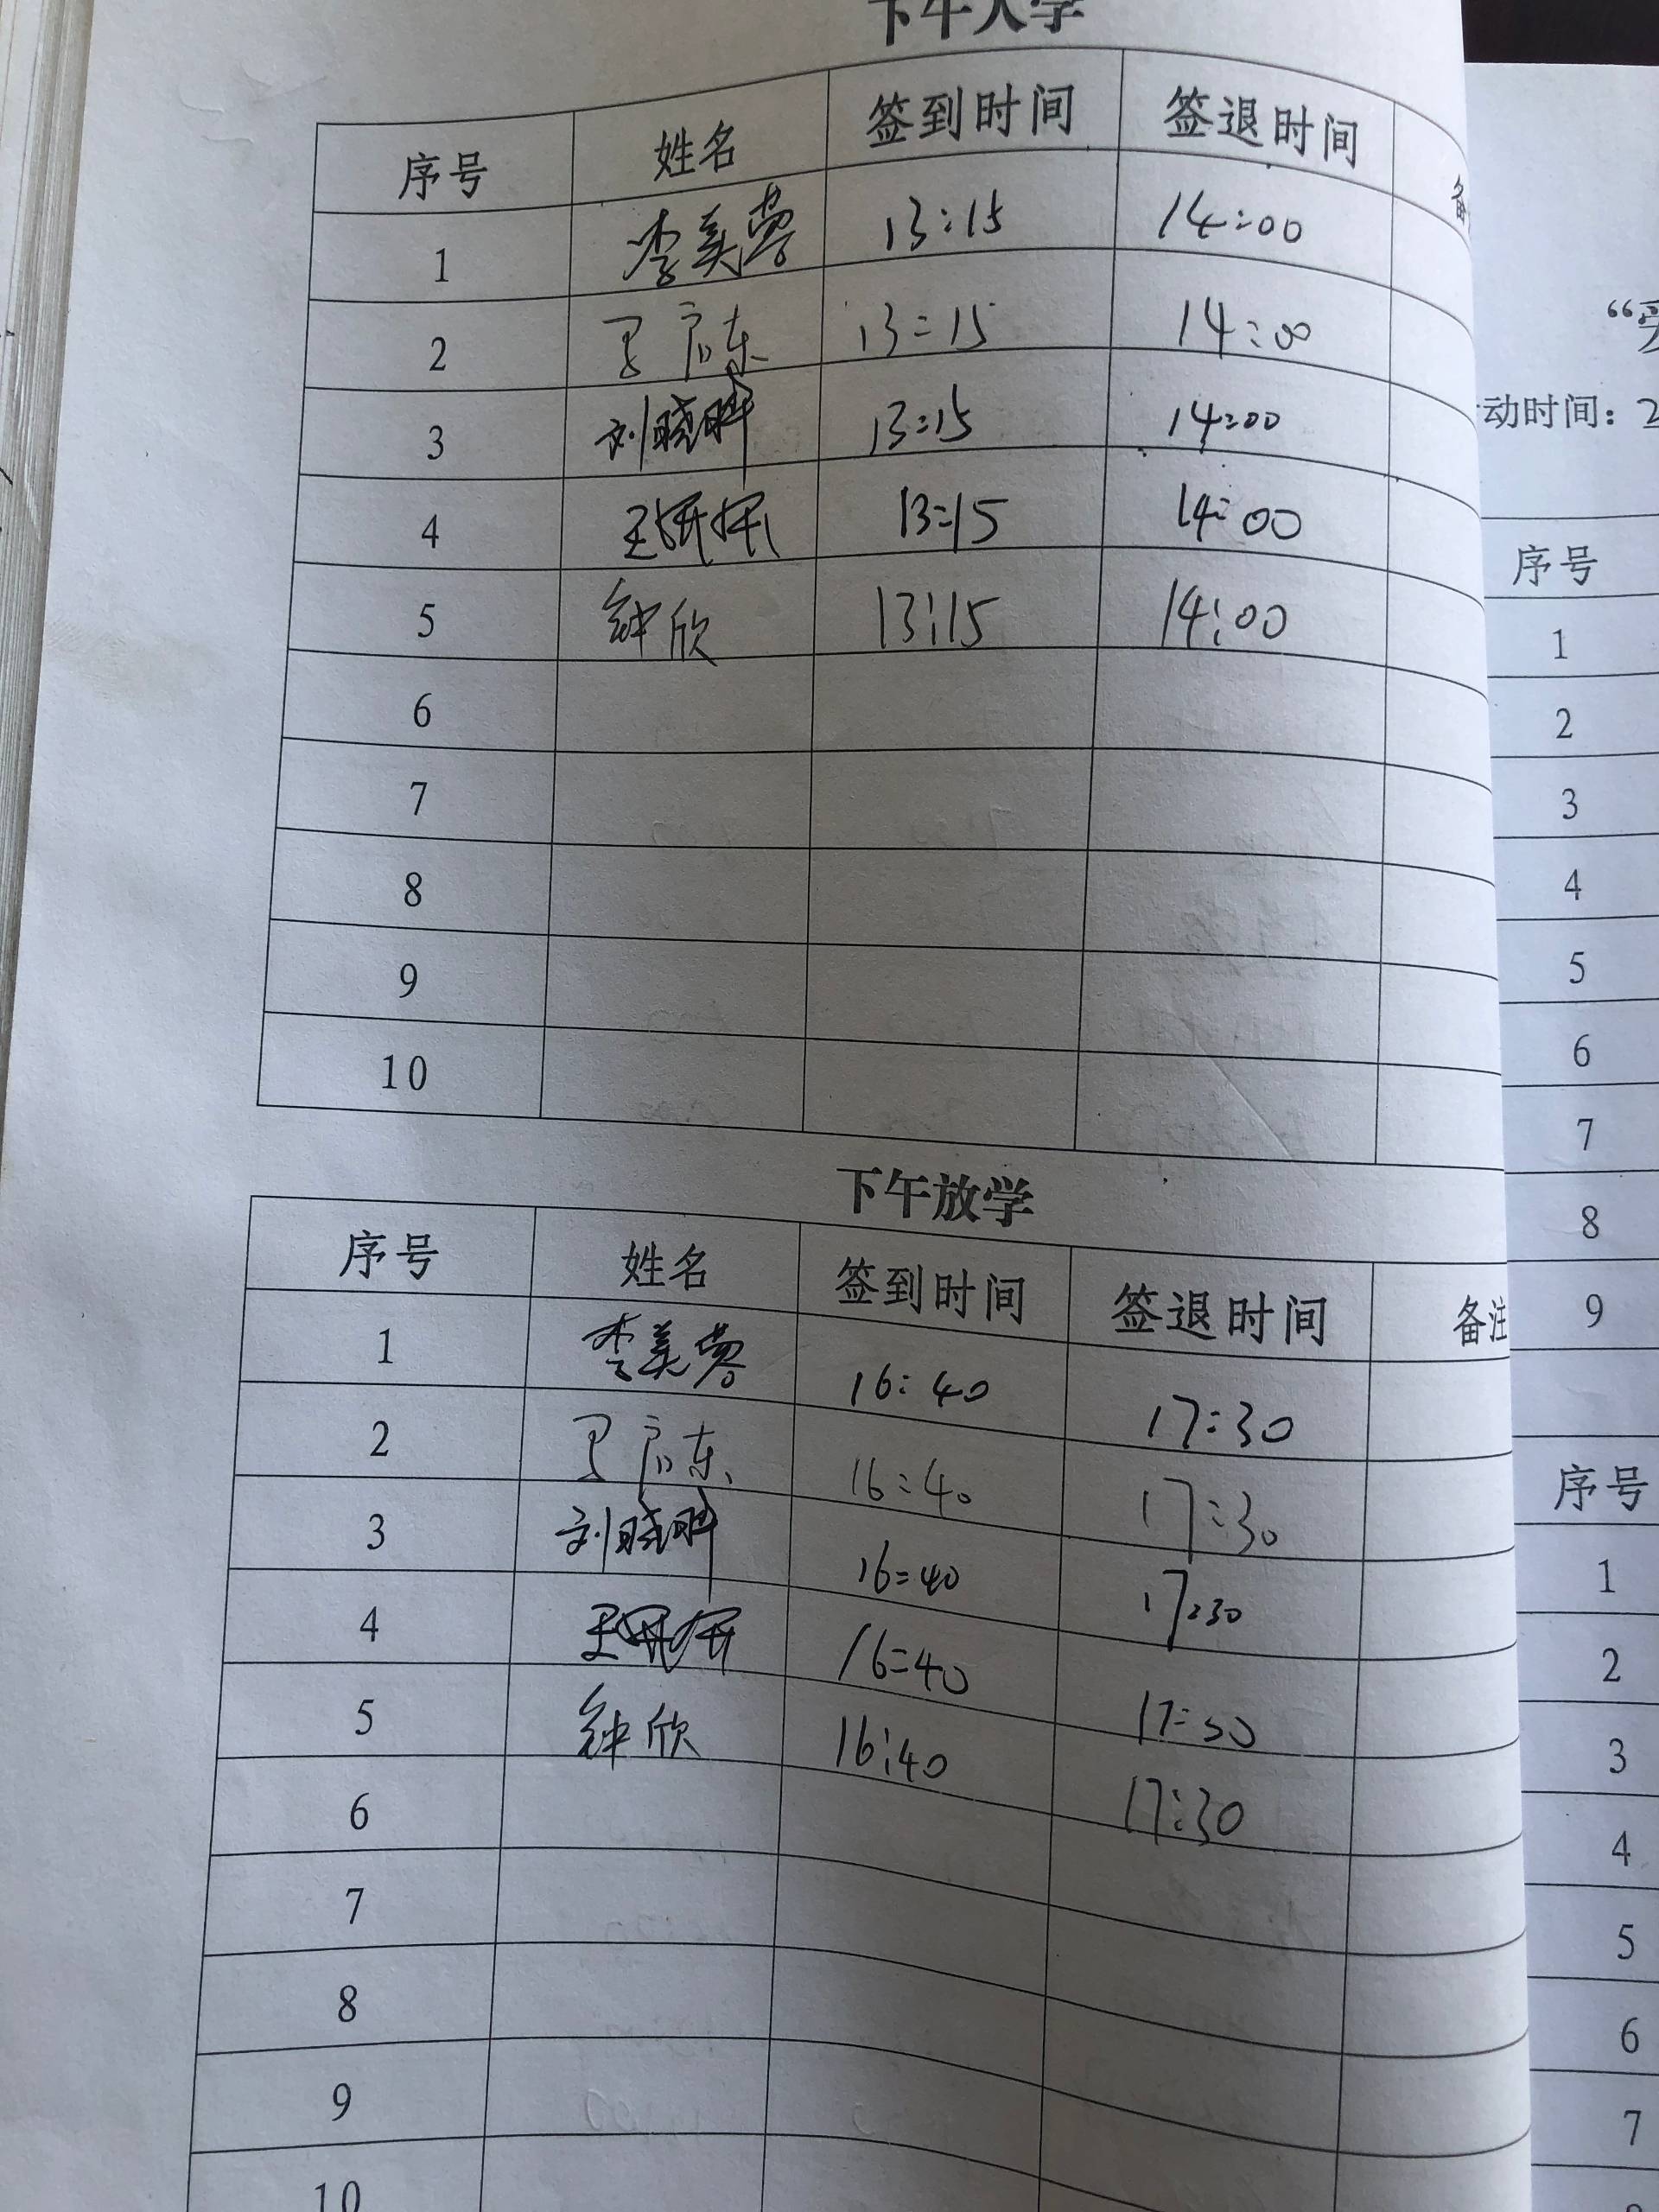 下午入学
序号 姓名 签到时间 签退时间 备
1 李美蓉 13:15 14:00
2 13:15 14:00
3 刘晓晔 13:15 14:00
4 王妍妍 13:15 14:00
5 钟欣 13:15 14:00
6
7
8
9
10
下午放学
序号 姓名 签到时间 签退时间 备注
1 李美蓉 16:40 17:30
2 16:40 17:30
3 刘晓晔 16:40 17:30
4 王妍妍 16:40 17:30
5 钟欣 16:40 17:30
6
7
8
9
10
动时间：2
序号
1
2
3
4
5
6
7
8
9
序号
1
2
3
4
5
6
7